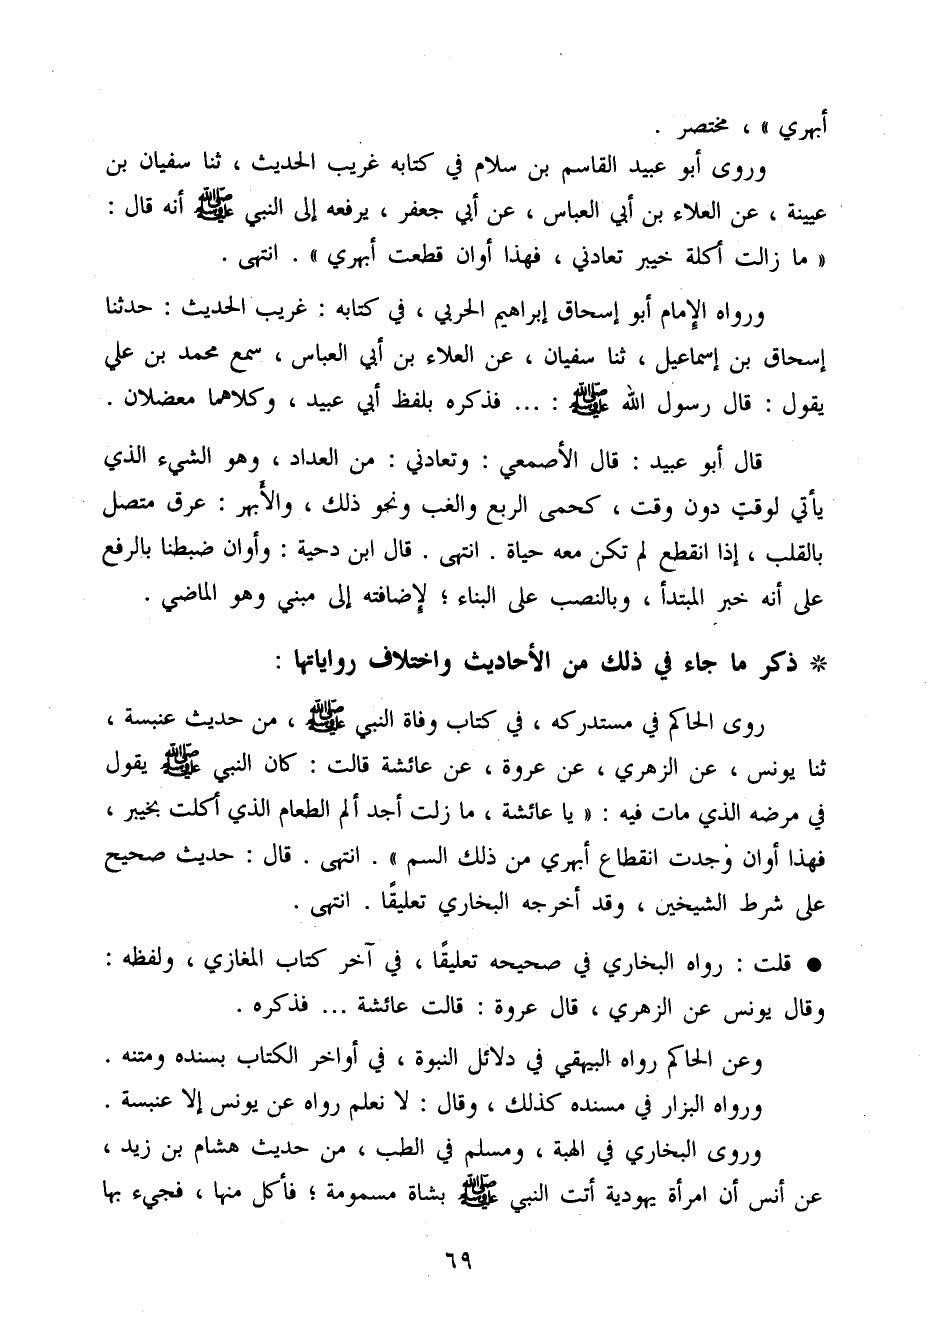 أبهري » ، مختصر .
وروى أبو عبيد القاسم بن سلام في كتابه غريب الحديث ، ثنا سفيان بن
عيينة ، عن العلاء بن أبي العباس ، عن أبي جعفر ، يرفعه إلى النبي ﷺ أنه قال :
« ما زالت أكلة خيبر تعادني ، فهذا أوان قطعت أبهري » . انتهى .
ورواه الإمام أبو إسحاق إبراهيم الحربي ، في كتابه : غريب الحديث : حدثنا
إسحاق بن إسماعيل ، ثنا سفيان ، عن العلاء بن أبي العباس ، سمع محمد بن علي
يقول : قال رسول الله ﷺ : ... فذكره بلفظ أبي عبيد ، وكلاهما معضلان .
قال أبو عبيد : قال الأصمعي : وتعادني : من العداد ، وهو الشيء الذي
يأتي لوقتٍ دون وقت ، كحمى الربع والغب ونحو ذلك ، والأَبهر : عرق متصل
بالقلب ، إذا انقطع لم تكن معه حياة . انتهى . قال ابن دحية : وأوان ضبطنا بالرفع
على أنه خبر المبتدأ ، وبالنصب على البناء ؛ لإضافته إلى مبني وهو الماضي .
* ذكر ما جاء في ذلك من الأحاديث واختلاف رواياتها :
روى الحاكم في مستدركه ، في كتاب وفاة النبي ﷺ ، من حديث عنبسة ،
ثنا يونس ، عن الزهري ، عن عروة ، عن عائشة قالت : كان النبي ﷺ يقول
في مرضه الذي مات فيه : « يا عائشة ، ما زلت أجد ألم الطعام الذي أكلت بخيبر ،
فهذا أوان وُجدت انقطاع أبهري من ذلك السم » . انتهى . قال : حديث صحيح
على شرط الشيخين ، وقد أخرجه البخاري تعليقًا . انتهى .
● قلت : رواه البخاري في صحيحه تعليقًا ، في آخر كتاب المغازي ، ولفظه :
وقال يونس عن الزهري ، قال عروة : قالت عائشة ... فذكره .
وعن الحاكم رواه البيهقي في دلائل النبوة ، في أواخر الكتاب بسنده ومتنه .
ورواه البزار في مسنده كذلك ، وقال : لا نعلم رواه عن يونس إلا عنبسة .
وروى البخاري في الهبة ، ومسلم في الطب ، من حديث هشام بن زيد ،
عن أنس أن امرأة يهودية أتت النبي ﷺ بشاة مسمومة ؛ فأكل منها ، فجيء بها
٦٩